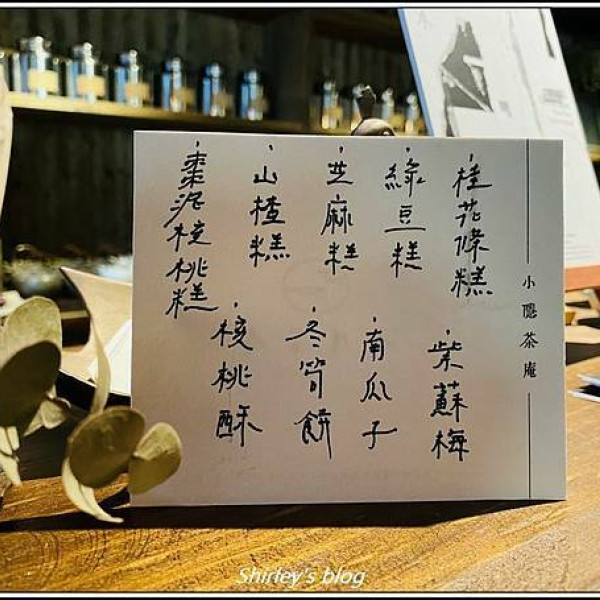 小隱茶庵
·桂花條糕
·綠豆糕
·芝麻糕
·山楂糕
·棗泥核桃糕
·紫蘇梅
·南瓜子
·冬筍餅
·核桃酥
Shirley's blog